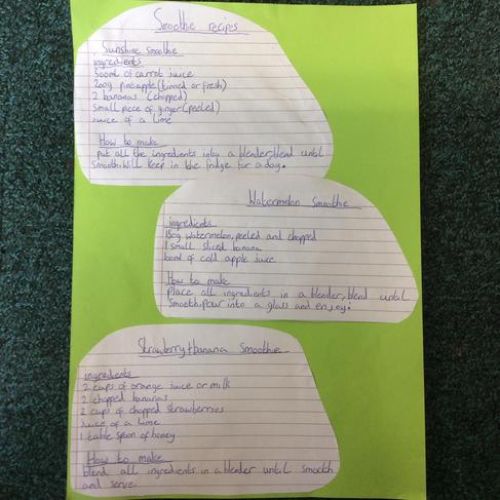 Smoothie recipes
Sunshine Smoothie
ingredients
500ml of carrot juice
200g pineapple (tinned or fresh)
2 bananas (chopped)
Small piece of ginger (peeled)
Juice of a lime
How to make
put all the ingredients into a blender, blend until
smooth. will keep in the fridge for a day.
Watermelon Smoothie
ingredients
watermelon, peeled and chopped
1 small sliced banana
of cold apple juice
How to make
Place all ingredients in a blender, blend until
Smooth. Pour into a glass and enjoy.
Strawberry + banana Smoothie
ingredients
2 cups of orange juice or milk
2 chopped bananas
2 cups of chopped strawberries
Juice of a lime
1 table spoon of honey
How to make
blend all ingredients in a blender until smooth
and serve